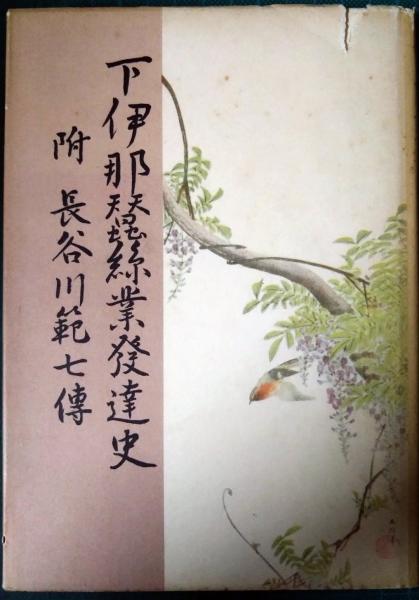 下伊那蠶絲業發達史
附 長谷川範七傳